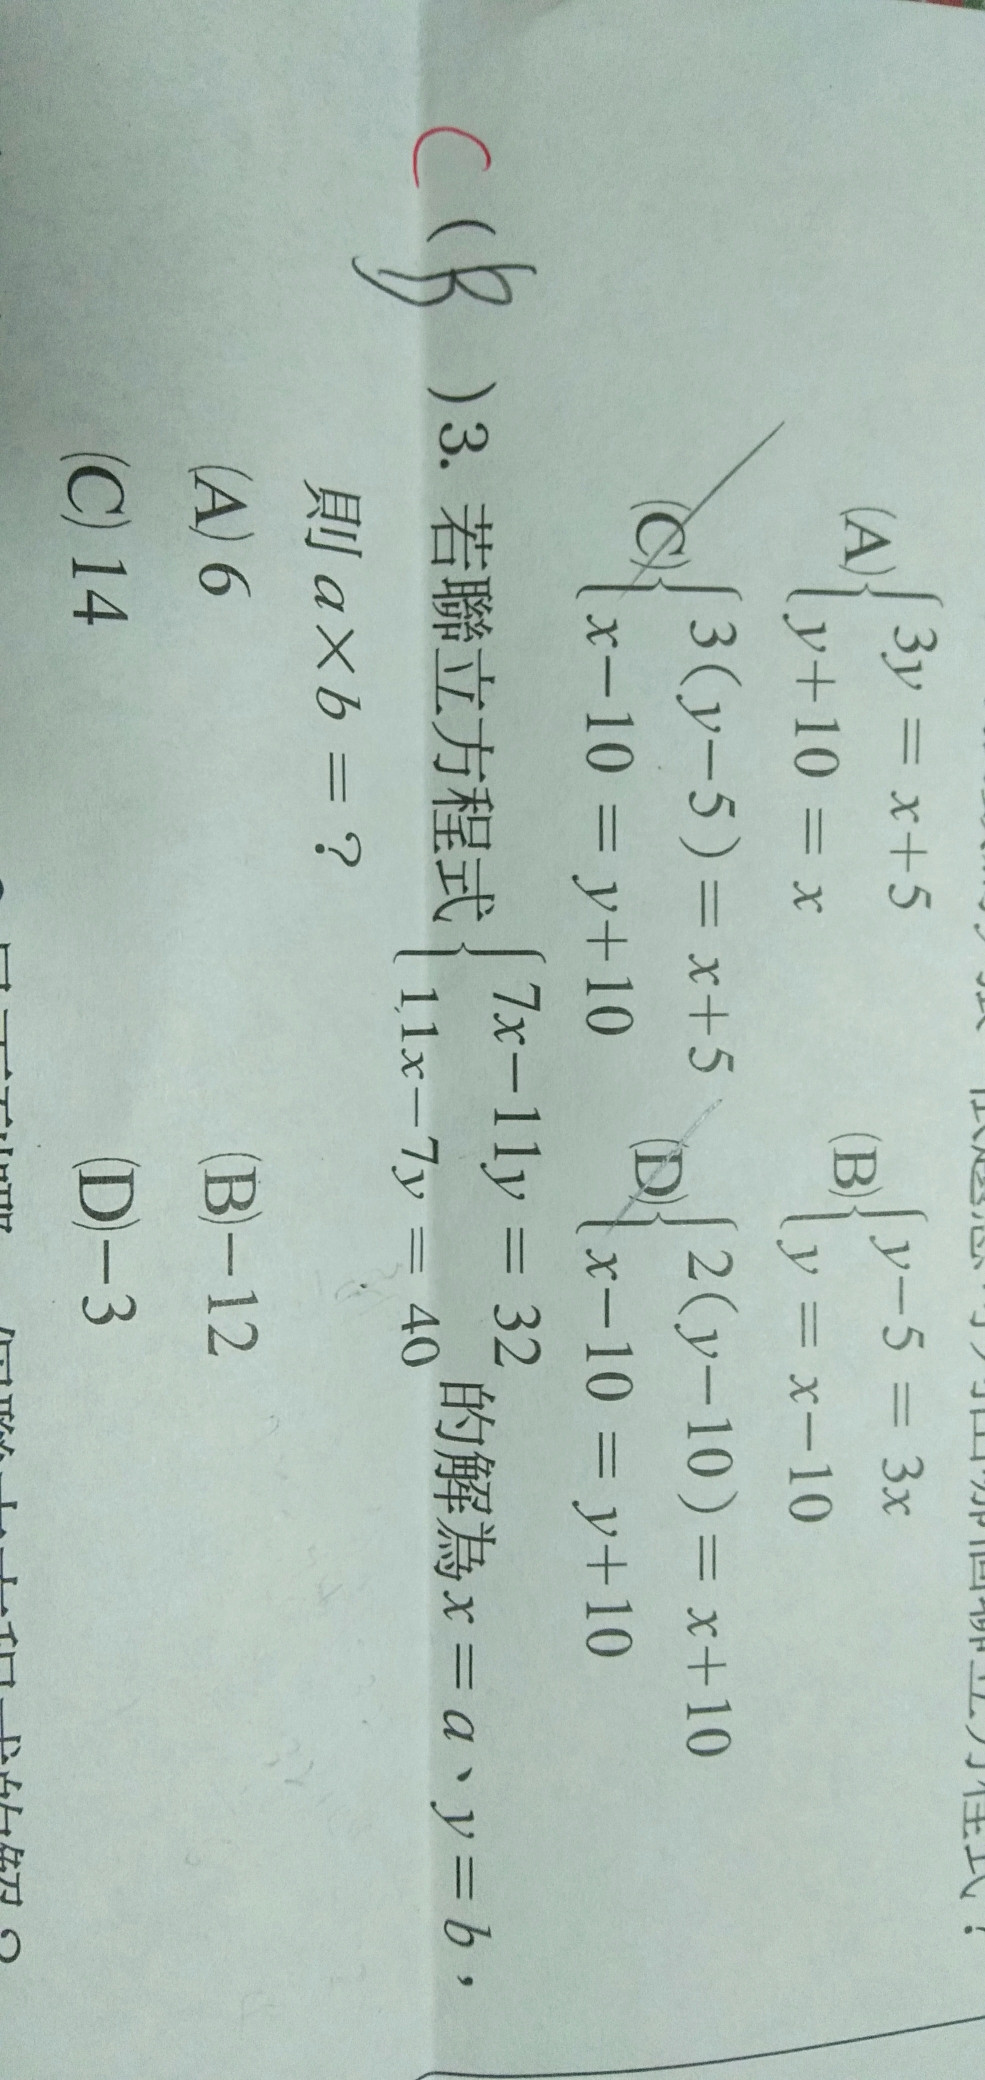 (A){3y = x+5
y+10 = x
(B){y-5 = 3x
y = x-10
(C){3(y-5) = x+5
x-10 = y+10
(D){2(y-10) = x+10
x-10 = y+10
C (B) 3. 若聯立方程式{7x-11y = 32
11x-7y = 40 的解為x = a、y = b，
則a×b = ?
(A) 6 (B)-12
(C) 14 (D)-3